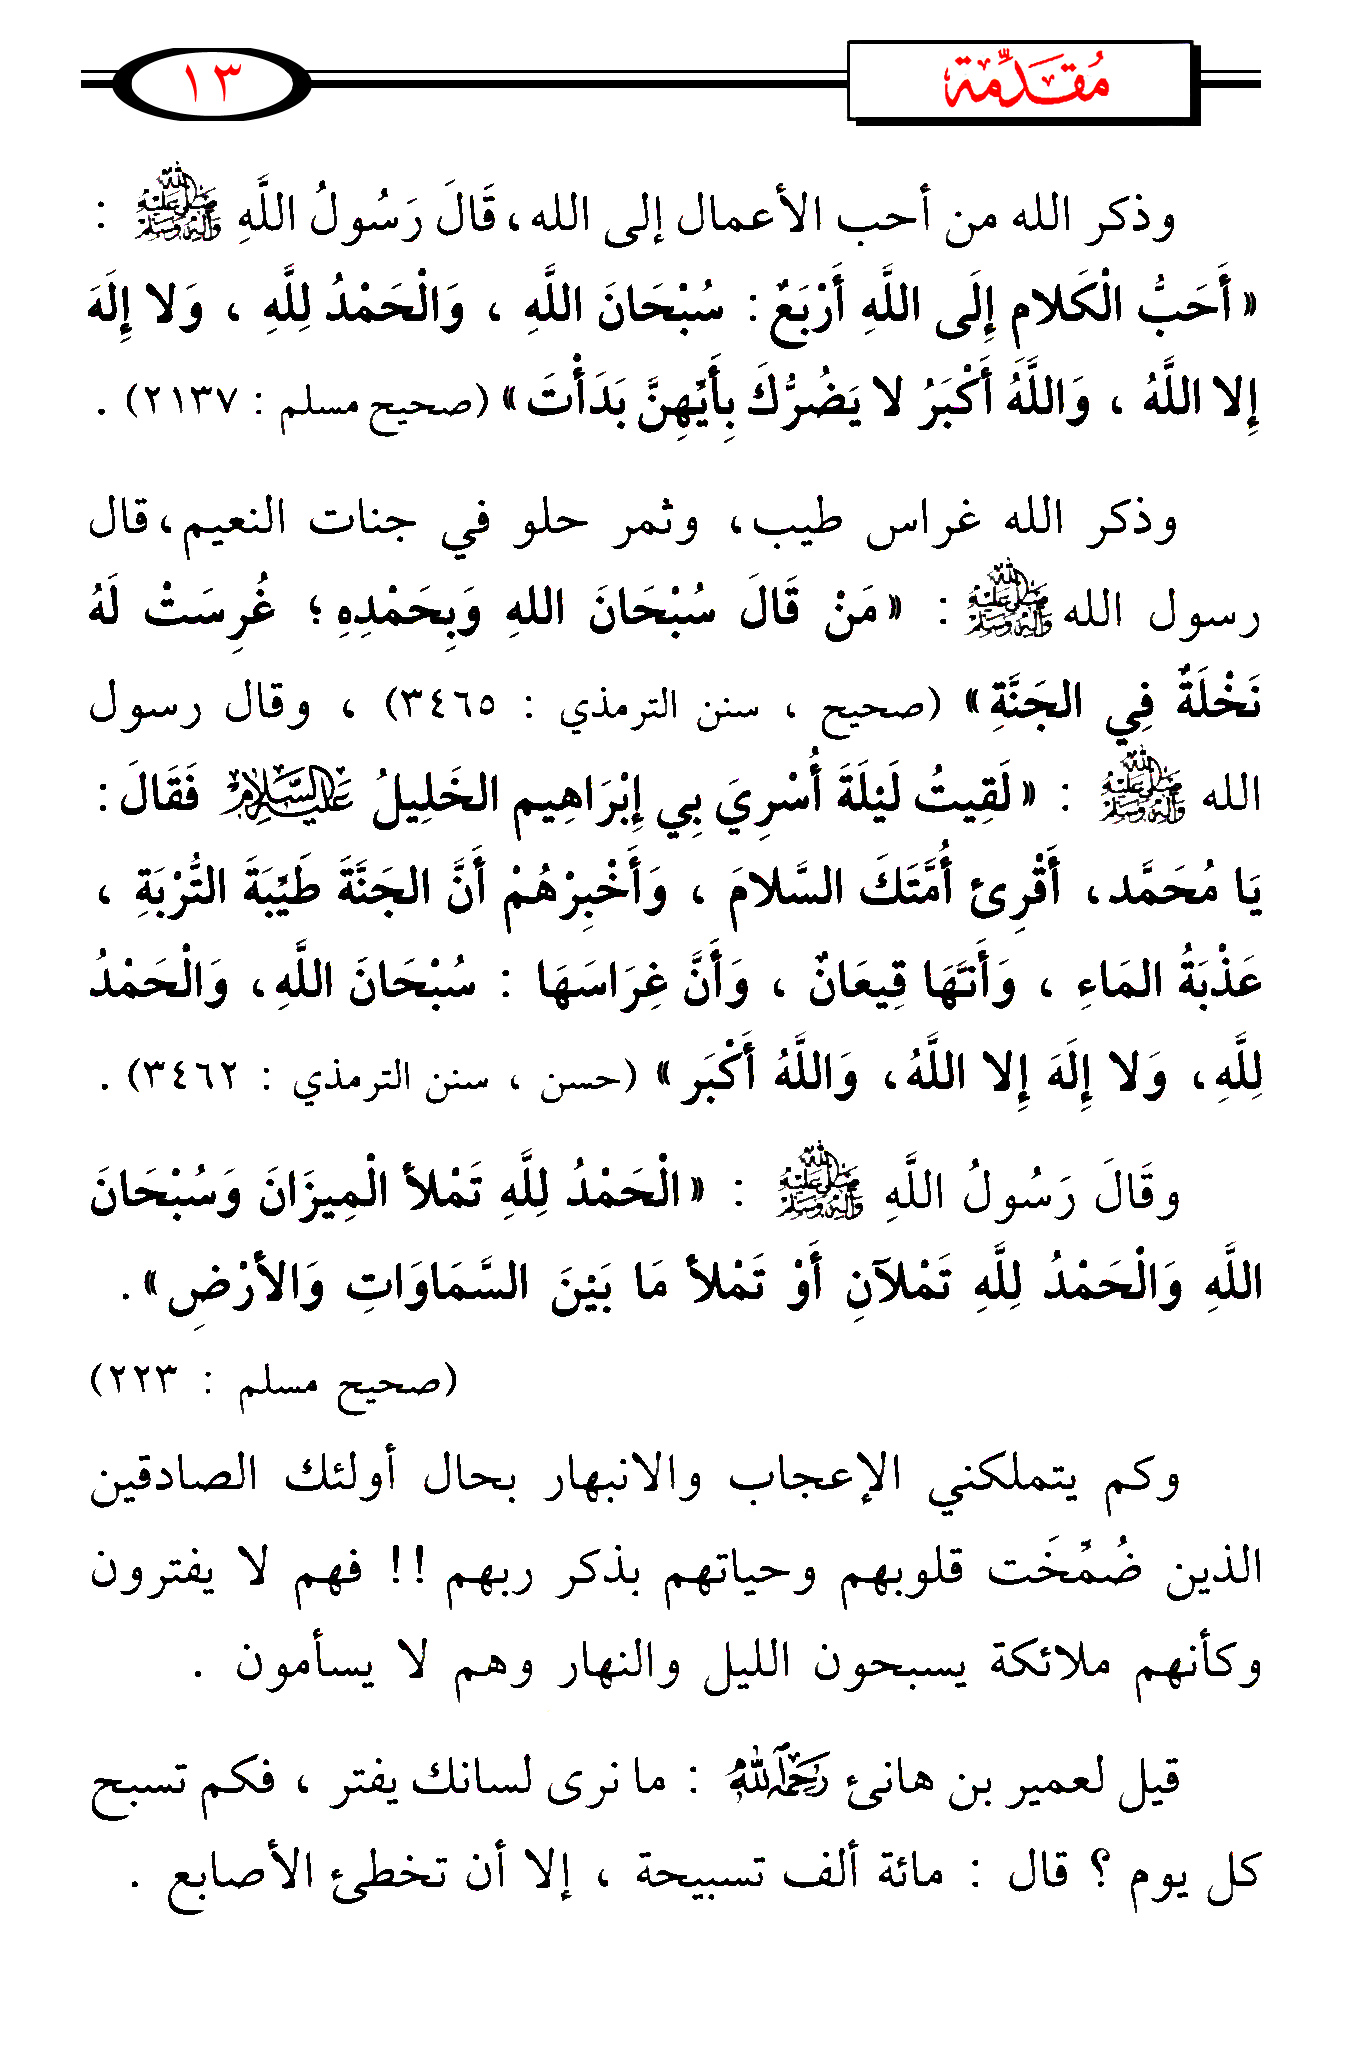 مُقَدِّمة
١٣
وذكر الله من أحب الأعمال إلى الله، قَالَ رَسُولُ اللَّهِ ﷺ :
« أَحَبُّ الْكَلام إِلَى اللَّهِ أَرْبَعٌ : سُبْحَانَ اللَّهِ ، وَالْحَمْدُ لِلَّهِ ، وَلا إِلَهَ
إِلا اللَّهُ ، وَاللَّهُ أَكْبَرُ لا يَضُرُّكَ بِأَيِّهِنَّ بَدَأْتَ » (صحيح مسلم : ٢١٣٧) .
وذكر الله غراس طيب، وثمر حلو في جنات النعيم، قال
رسول الله ﷺ : « مَنْ قَالَ سُبْحَانَ اللهِ وَبِحَمْدِهِ ؛ غُرِسَتْ لَهُ
نَخْلَةٌ فِي الجَنَّةِ » (صحيح ، سنن الترمذي : ٣٤٦٥) ، وقال رسول
الله ﷺ : « لَقِيتُ لَيْلَةَ أُسْرِيَ بِي إِبْرَاهِيم الخَلِيلُ عليه السلام فَقَالَ :
يَا مُحَمَّد، أَقْرِئ أُمَّتَكَ السَّلامَ ، وَأَخْبِرْهُمْ أَنَّ الجَنَّةَ طَيِّبَةَ التُّرْبَةِ ،
عَذْبَةُ المَاءِ ، وَأَنَّهَا قِيعَانٌ ، وَأَنَّ غِرَاسَهَا : سُبْحَانَ اللَّهِ، وَالْحَمْدُ
لِلَّهِ، وَلا إِلَهَ إِلا اللَّهُ، وَاللَّهُ أَكْبَر » (حسن ، سنن الترمذي : ٣٤٦٢) .
وقَالَ رَسُولُ اللَّهِ ﷺ : « الْحَمْدُ لِلَّهِ تَمْلأ الْمِيزَانَ وَسُبْحَانَ
اللَّهِ وَالْحَمْدُ لِلَّهِ تَمْلآنِ أَوْ تَمْلأ مَا بَيْنَ السَّمَاوَاتِ وَالأرْضِ » .
(صحيح مسلم : ٢٢٣)
وكم يتملكني الإعجاب والانبهار بحال أولئك الصادقين
الذين ضُمِّخَت قلوبهم وحياتهم بذكر ربهم !! فهم لا يفترون
وكأنهم ملائكة يسبحون الليل والنهار وهم لا يسأمون .
قيل لعمير بن هانئ رحمه الله : ما نرى لسانك يفتر ، فكم تسبح
كل يوم ؟ قال : مائة ألف تسبيحة ، إلا أن تخطئ الأصابع .